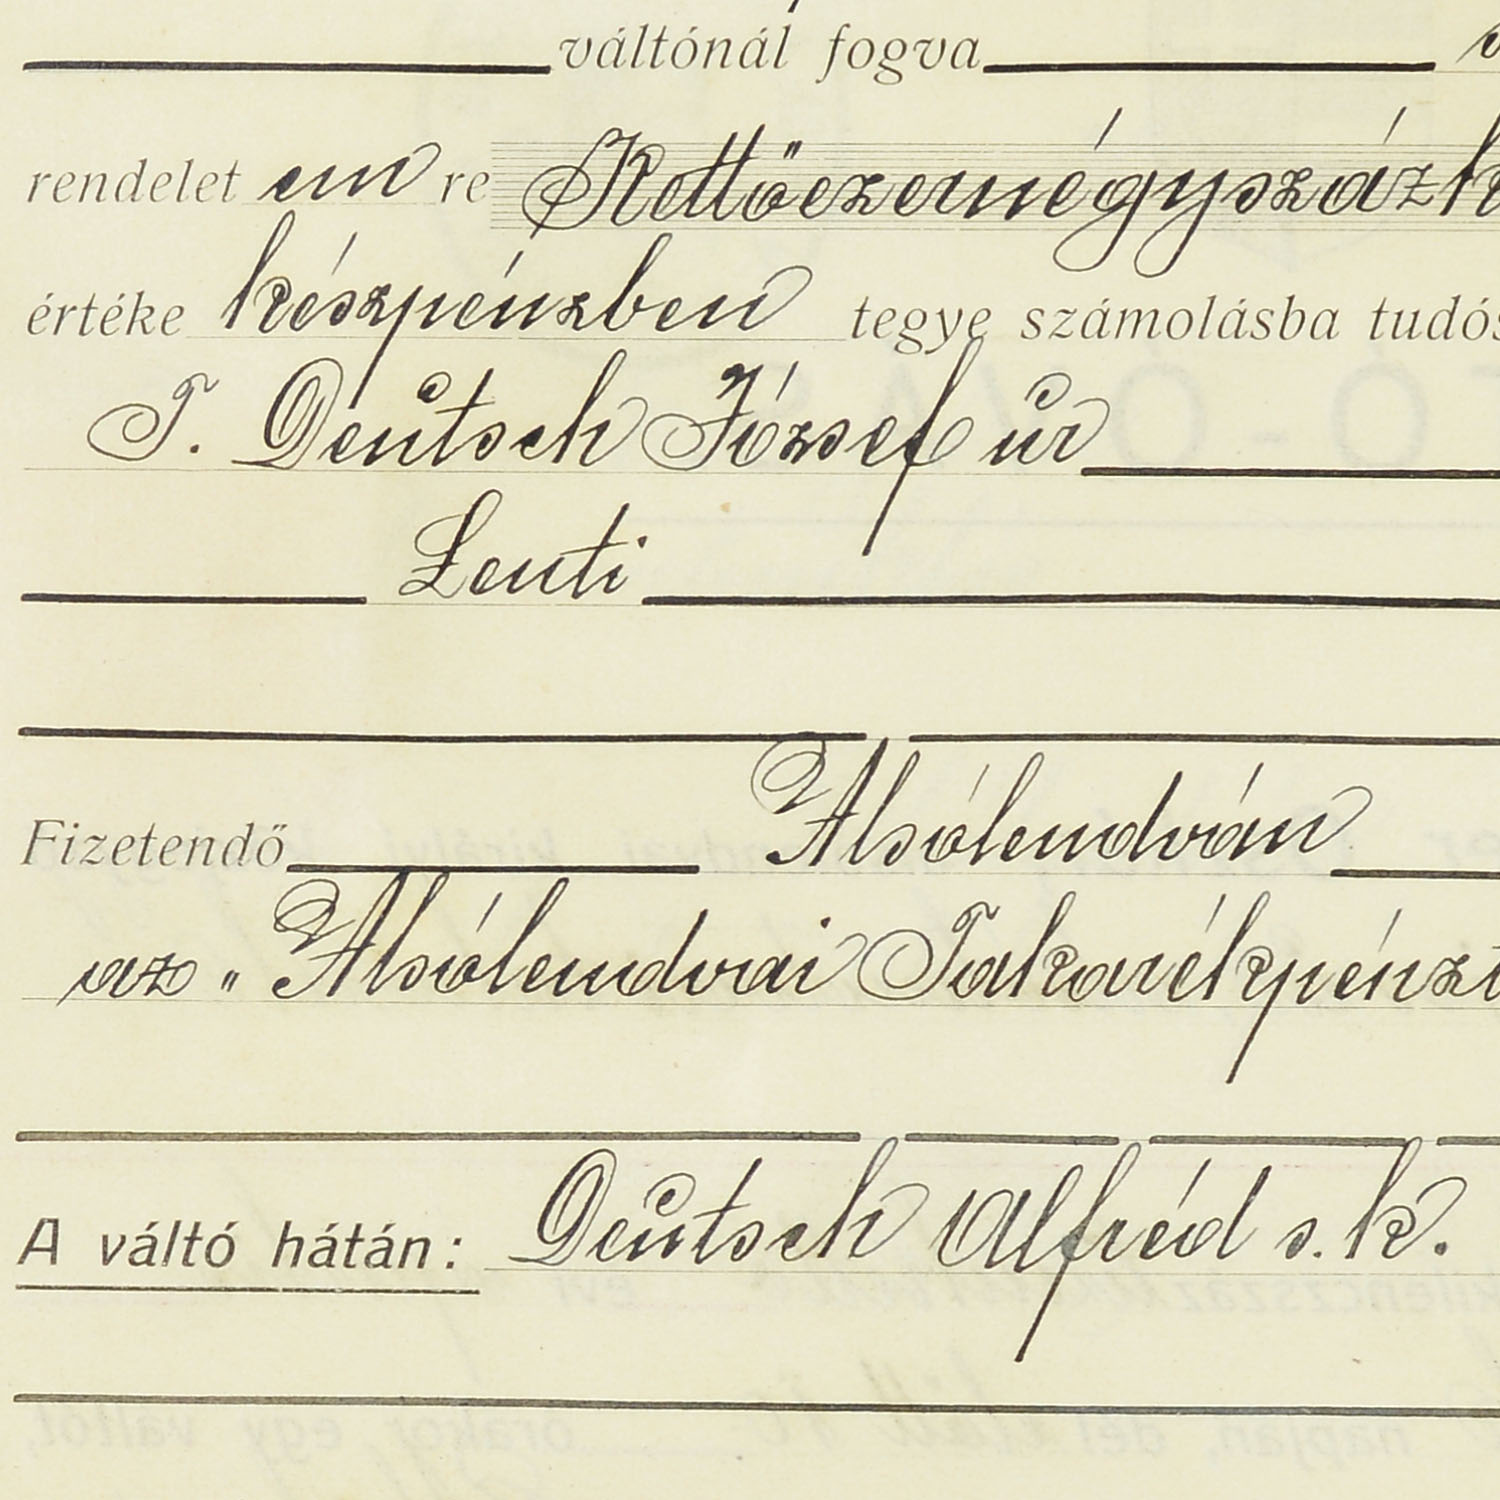 váltónál fogva
rendelet em re Kettőezernégyszáz
értéke készpénzben tegye számolásba tudós
T. Deutsch József úr
Lenti
Fizetendő Alsólendván
az „Alsólendvai Takarékpénzt
A váltó hátán: Deutsch Alfréd s. k.